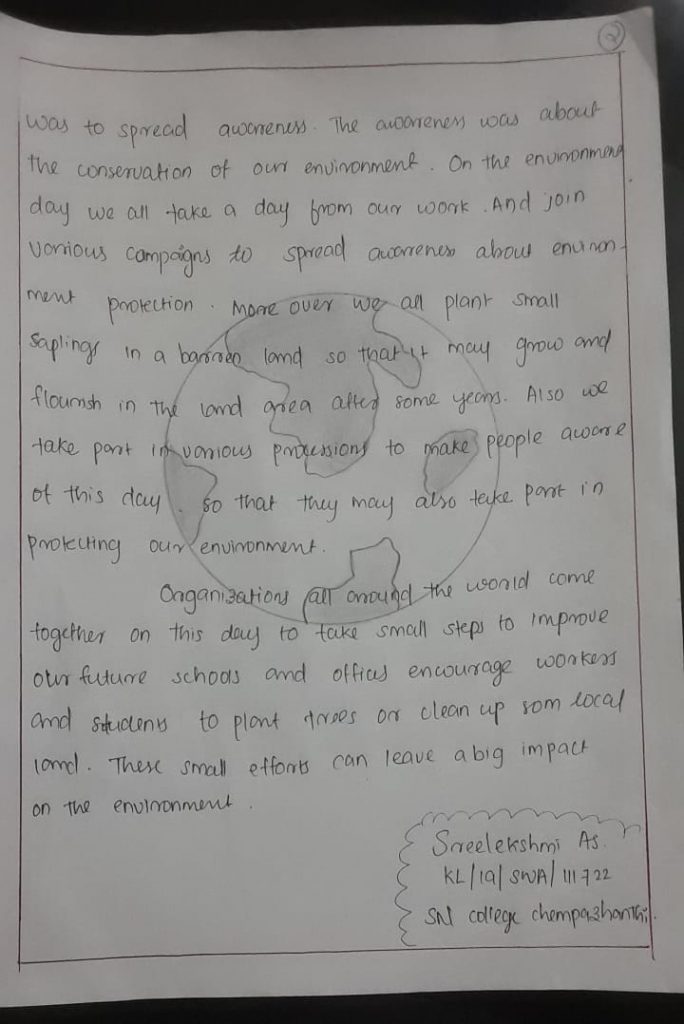 2
was to spread awareness. The awareness was about
the conservation of our environment. On the environment
day we all take a day from our work. And join
various campaigns to spread awareness about environ-
ment protection. More over we all plant small
saplings in a barren land so that it may grow and
flourish in the land area after some years. Also we
take part in various processions to make people aware
of this day. so that they may also take part in
protecting our environment.
Organizations all around the world come
together on this day to take small steps to improve
our future schools and offices encourage workers
and students to plant trees or clean up som local
land. These small efforts can leave a big impact
on the environment.
Sreelekshmi AS.
KL/19/SWA/111722
SN college chempazhanthi.